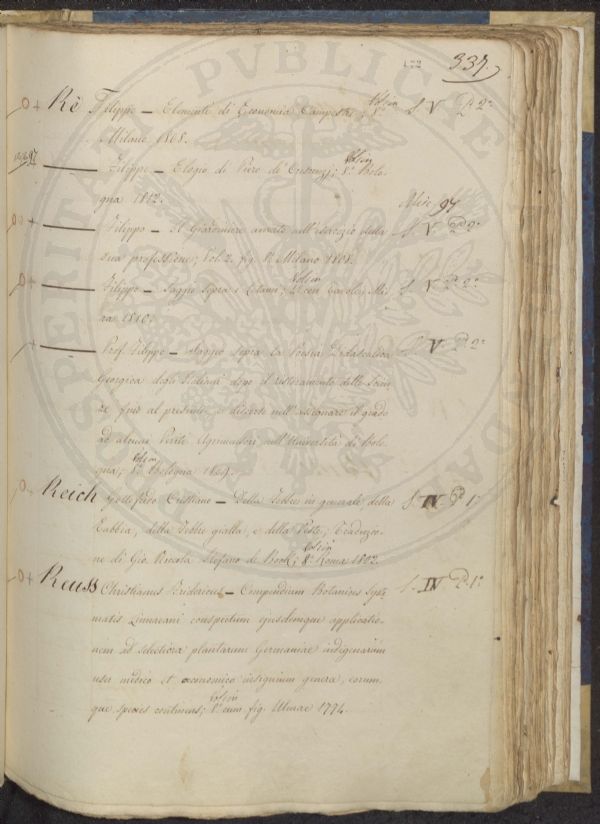 337.
Rè Filippo — Elementi di Economia Campestre; 8º S. V. P. 2ª
Milano 1808.
Filippo — Elogio di Piero de' Crescenzj; 8º Bolo-
gna 1812. Misc. 97
Filippo — Il Giardiniere avviato nell'esercizio della S. V. P. 2ª
sua professione; Vol. 2. fig. 8º Milano 1808.
Filippo — Saggio sopra i Letami; 8º con Tavole; Mi- S. V. P. 2ª
1810.
Prof. Filippo — Saggio sopra la Poesia Didascalica S. V. P. 2ª
Georgica degli Italiani dopo il ristoramento delle Scien-
ze fino al presente, e discorso nell'assegnare il grado
ad alcuni Periti Agrimensori nell'Università di Bolo-
gna; 8º Bologna 1809.
Reich Gottifredo Cristiano — Della Febbre in generale, della S. IV. P. 1ª
Rabbia, della Febbre gialla, e della Peste; Traduzio-
ne di Gio. Niccola Stefano de Book; 8º Roma 1802.
Reuss Christianus Fridericus — Compendium Botanices Syste- S. IV. P. 1ª
matis Linnaeani conspectum ejusdemque applicatio-
nem ad selectiora plantarum Germaniae indigenarum
usu medico et oeconomico insignium genera, eorum-
que species continens; 8º cum fig. Ulmae 1774.
PVBLICAE